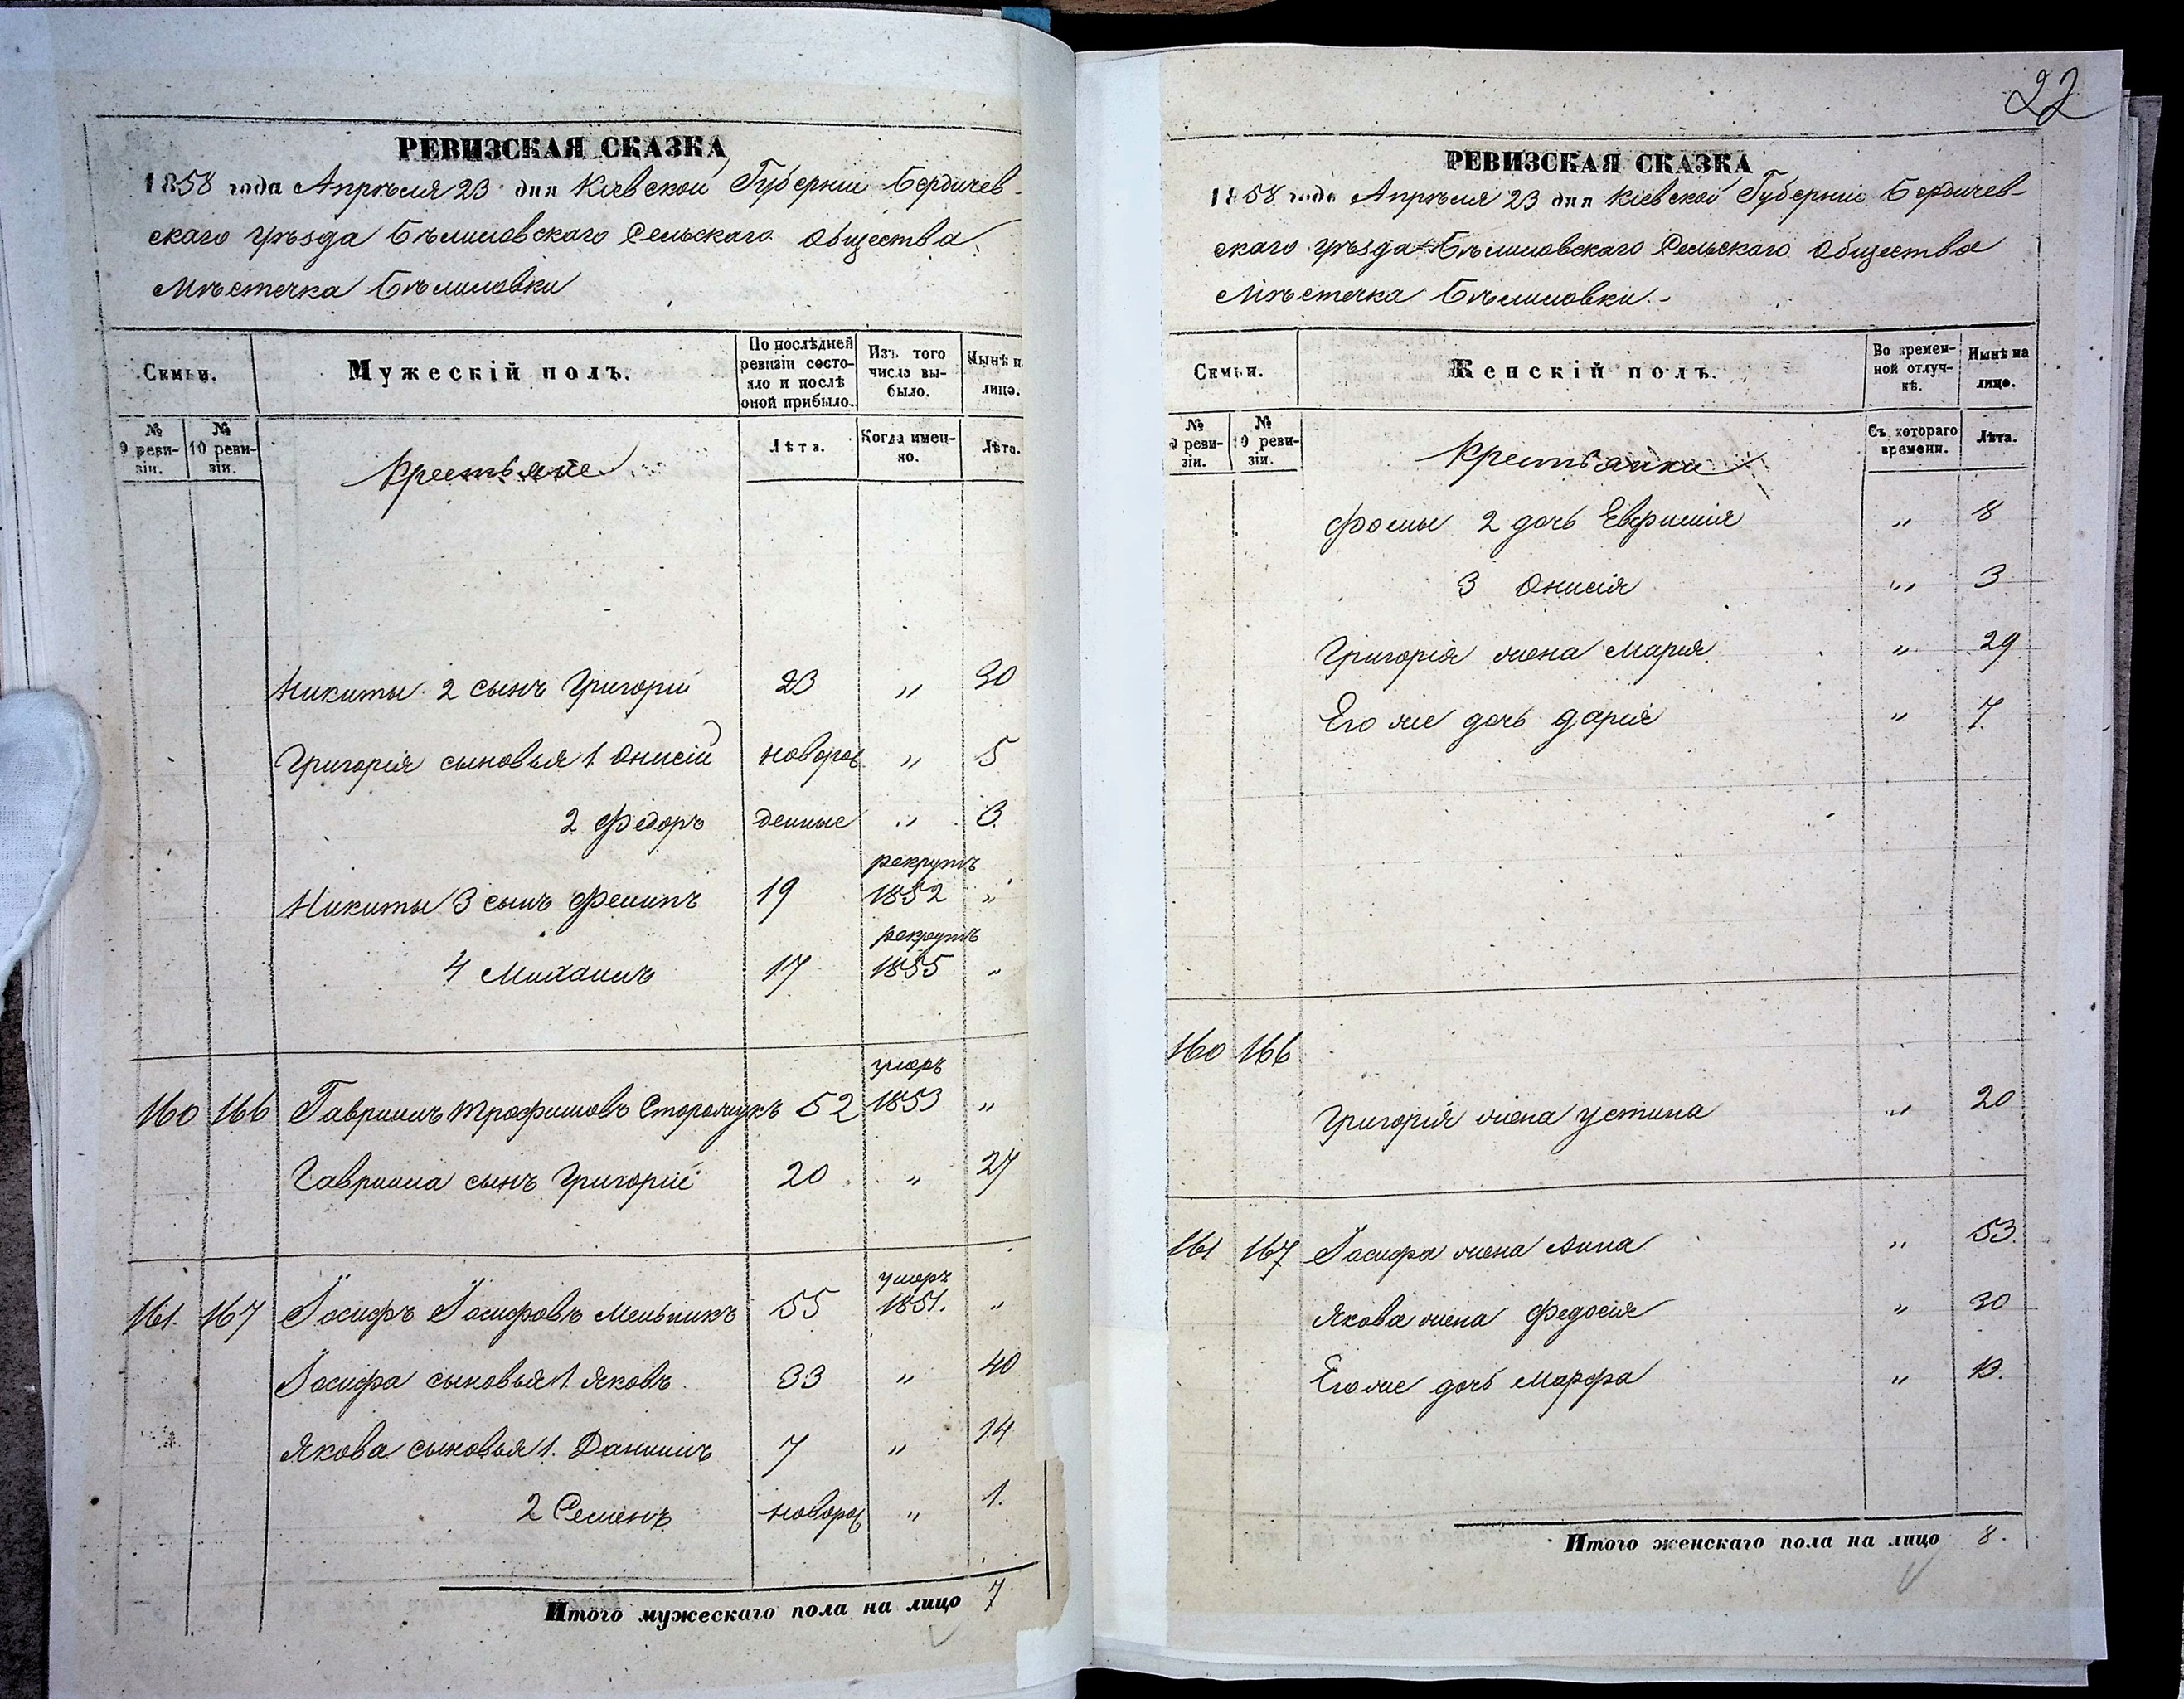 РЕВИЗСКАЯ СКАЗКА
1858 года Апрѣля 23 дня Кіевской Губерніи Бердичев-
скаго уѣзда Бѣлиловскаго Сельскаго Общества
Мѣстечка Бѣлиловки
Семьи. Мужескій полъ. По послѣдней ревизіи состояло и послѣ оной прибыло. Изъ того числа выбыло. Нынѣ н лицо.
№ 9 ревизіи. № 10 ревизіи. Крестьяне Лѣта. Когда именно. Лѣта.
Никиты 2 сынъ Григорій 23 " 30
Григорія сыновья 1 Онисій новорож " 5
2 Федоръ денные " 3
рекрутъ
Никиты 3 сынъ Филипъ 19 1852 "
рекрутъ
4 Михаилъ 17 1855 "
умеръ
160 166 Гавриилъ Трофимовъ Сторожукъ 52 1853 "
Гавриила сынъ Григорій 20 " 27
умеръ
161. 167 Іосифъ Іосифовъ Мельникъ 55 1851. "
Іосифа сыновья 1. Яковъ 33 " 40
Якова сыновья 1. Даниилъ 7 " 14
2 Семенъ новорож " 1.
Итого мужескаго пола на лицо 7
22
РЕВИЗСКАЯ СКАЗКА
1858 года Апрѣля 23 дня Кіевской Губерніи Бердичев-
скаго уѣзда Бѣлиловскаго Сельскаго Общества
Мѣстечка Бѣлиловки.
Семьи. Женскій полъ. Во временной отлучкѣ. Нынѣ на лицо.
№ 9 ревизіи. № 10 ревизіи. Крестьянки Съ котораго времени. Лѣта.
Фомы 2 дочь Евфимія " 8
3 Онисія " 3
Григорія жена Марія " 29
Его же дочь Дарія " 7
160 166
Григорія жена Устина " 20
161 167 Іосифа жена Анна " 53.
Якова жена Федосія " 30
Его же дочь Марфа " 13.
Итого женскаго пола на лицо 8.